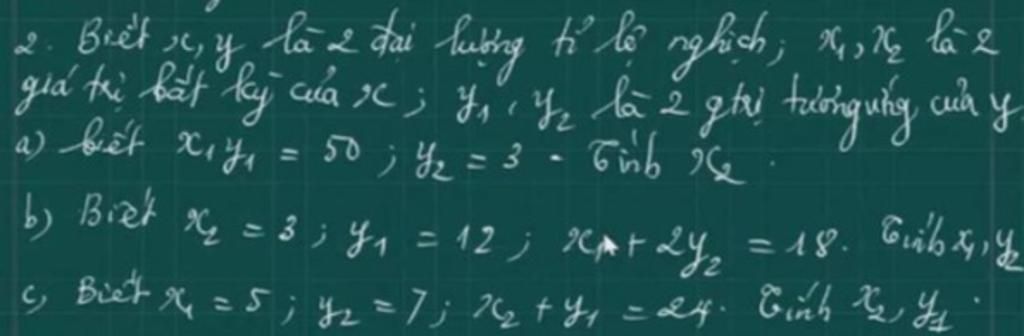 2. Biết x, y là 2 đại lượng tỉ lệ nghịch; x₁, x₂ là 2
giá trị bất kỳ của x; y₁, y₂ là 2 gtrị tương ứng của y
a) biết x₁y₁ = 50; y₂ = 3 - Tính x₂.
b) Biết x₂ = 3; y₁ = 12; x₁ + 2y₂ = 18. Tính x₁, y₂
c, Biết x₁ = 5; y₂ = 7; x₂ + y₁ = 24. Tính x₂, y₁.